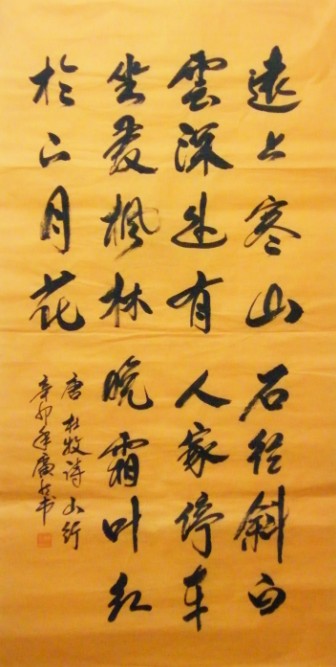 遠上寒山石径斜白
雲深处有人家停车
坐爱枫林晚霜叶红
於二月花
唐杜牧诗山行
辛卯年廣书